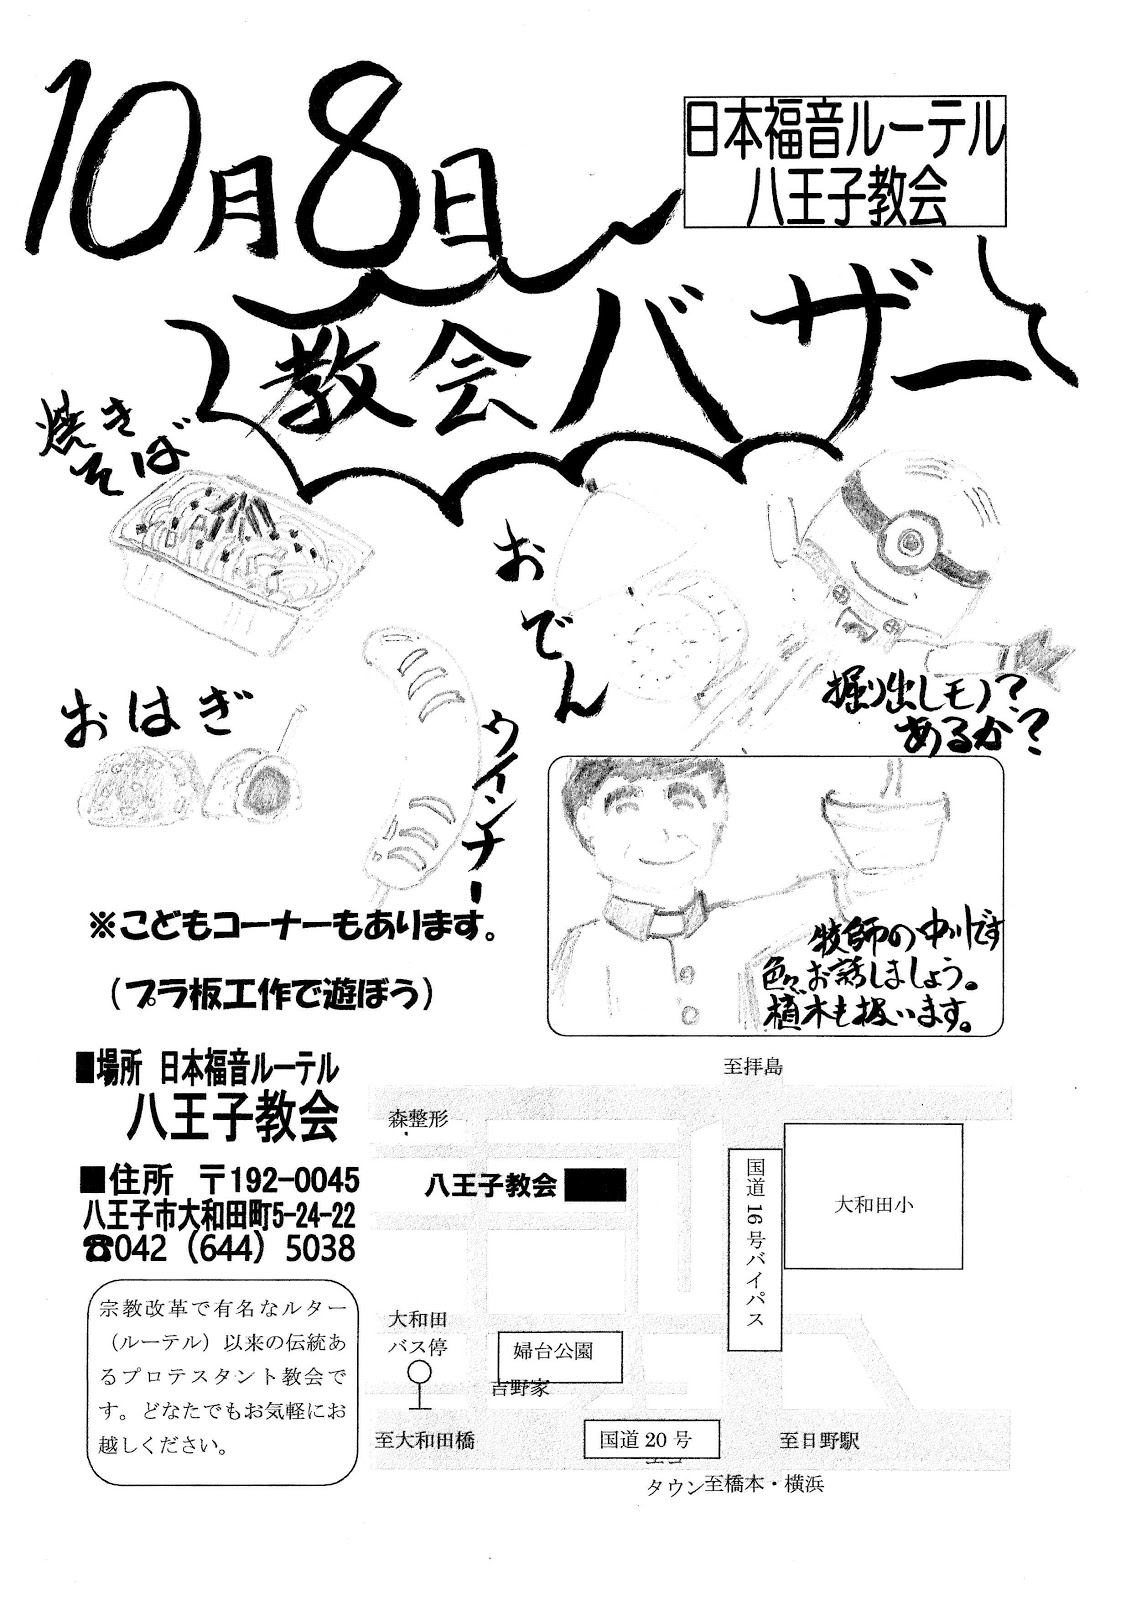 10月8日
日本福音ルーテル
八王子教会
教会バザー
焼き
そば
おでん
おはぎ
ウインナー
掘り出しモノ?
あるか?
牧師の中川です
色々お話しましょう。
植木も扱います。
※こどもコーナーもあります。
(プラ板工作で遊ぼう)
■場所 日本福音ルーテル
八王子教会
■住所 〒192-0045
八王子市大和田町5-24-22
☎042(644)5038
宗教改革で有名なルター
(ルーテル)以来の伝統あ
るプロテスタント教会で
す。どなたでもお気軽にお
越しください。
至拝島
森整形
八王子教会
国道16号バイパス
大和田小
大和田
バス停
婦台公園
吉野家
至大和田橋
国道20号
至日野駅
タウン至橋本・横浜